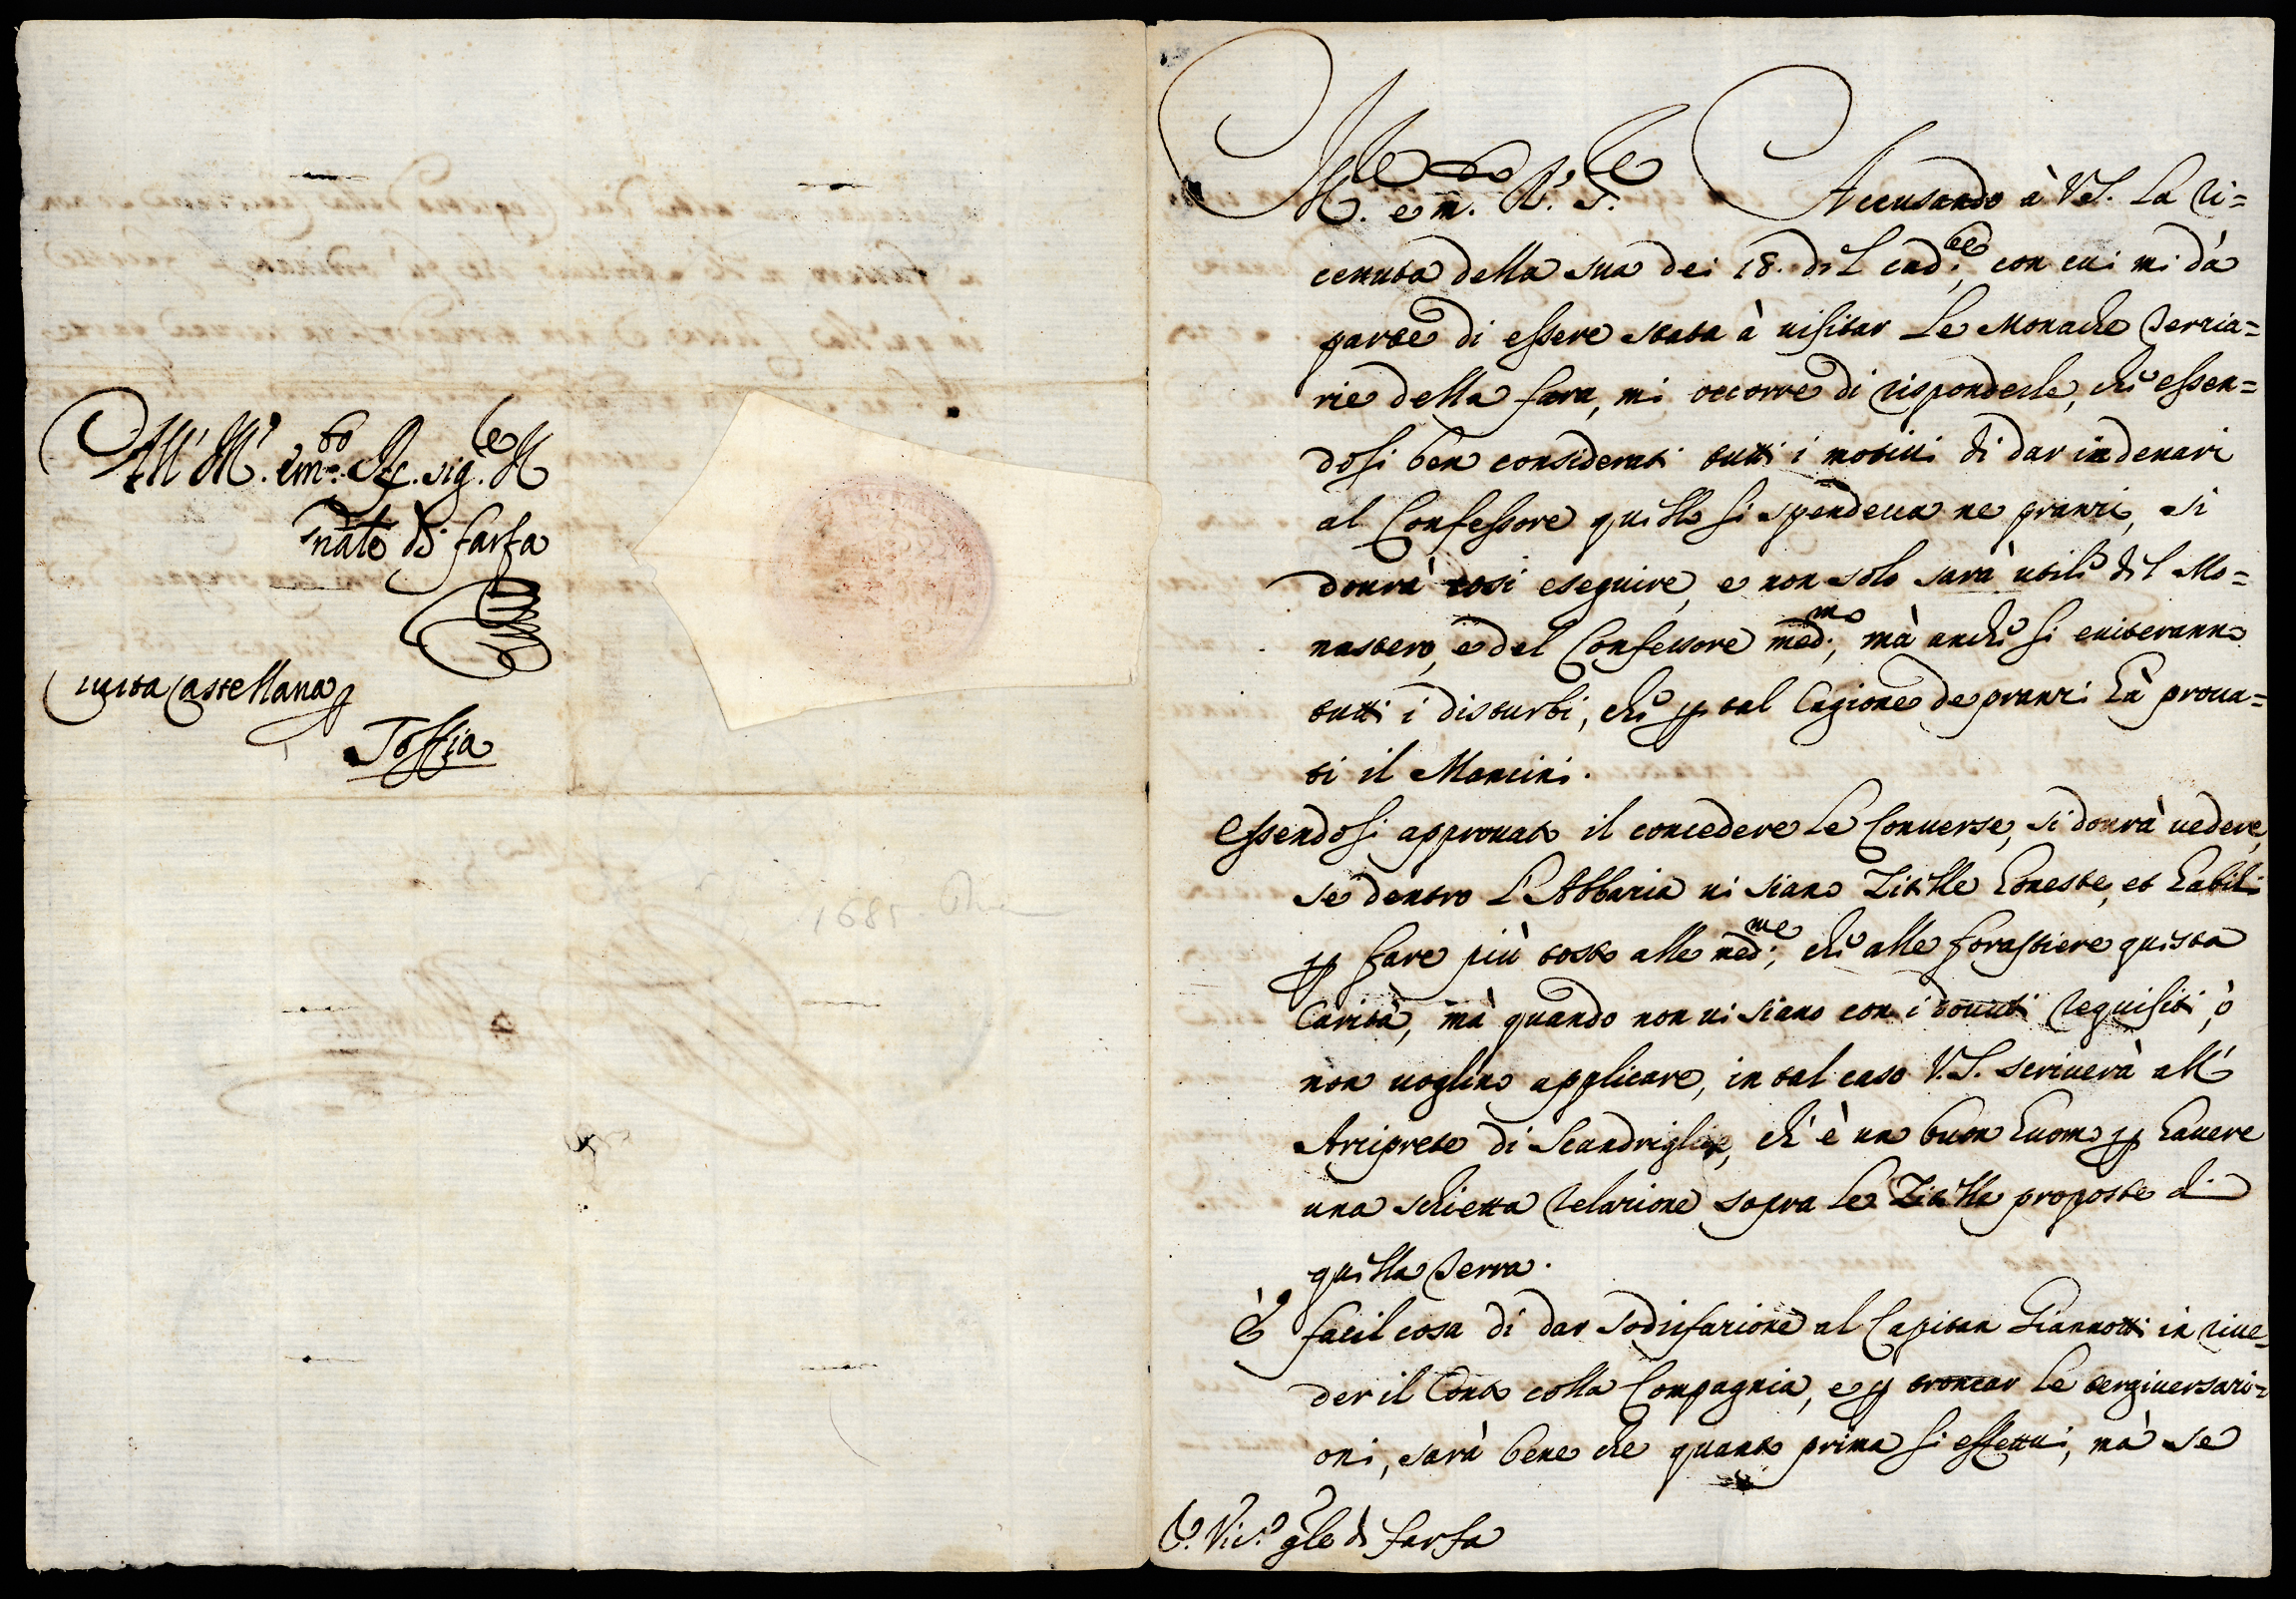 All' Ill.re e m.to R. sig.re Il
nãle di Farfa
Ciuita Castellana p
Toffia
1685
Ill.re e m.to R.do S.re Accusando à V.S. la ri=
ceuuta della sua dei 18. del cad.te, con cui mi dà
parte di essere stata à uisitar le Monache Terzia=
rie della fara, mi occorre di risponderle, che essen=
dosi ben considerati tutti i motiui di dar in denari
al Confessore quello si spendeua ne pranzi, si
dourà cosi eseguire, e non solo sarà utile del Mo=
nastero, e del Confessore med.mo, mà anche si euiteranno
tutti i disturbi, che p tal Cagione de pranzi hà proua=
ti il Mancini.
Essendosi approuato il concedere le Conuerse, si dourà uedere,
se dentro l'Abbazia ui siano Zitelle honeste, et habili
p fare più tosto alle med.me, che alle forastiere questa
Carità, mà quando non ui siano con i douuti requisiti, ò
non uoglino applicare, in tal caso V.S. scriuerà all'
Arciprete di Scandriglia, ch' è un buon huomo p hauere
una schietta relazione sopra le Zitelle proposte di
quella Terra.
È facil cosa di dar sodisfazione al Capitan Giannotti in riue=
der il Conto colla Compagnia, e p troncar le tergiuersazi=
oni, sarà bene che quanto prima si effettui, mà se
S. Vic.o gãle di Farfa